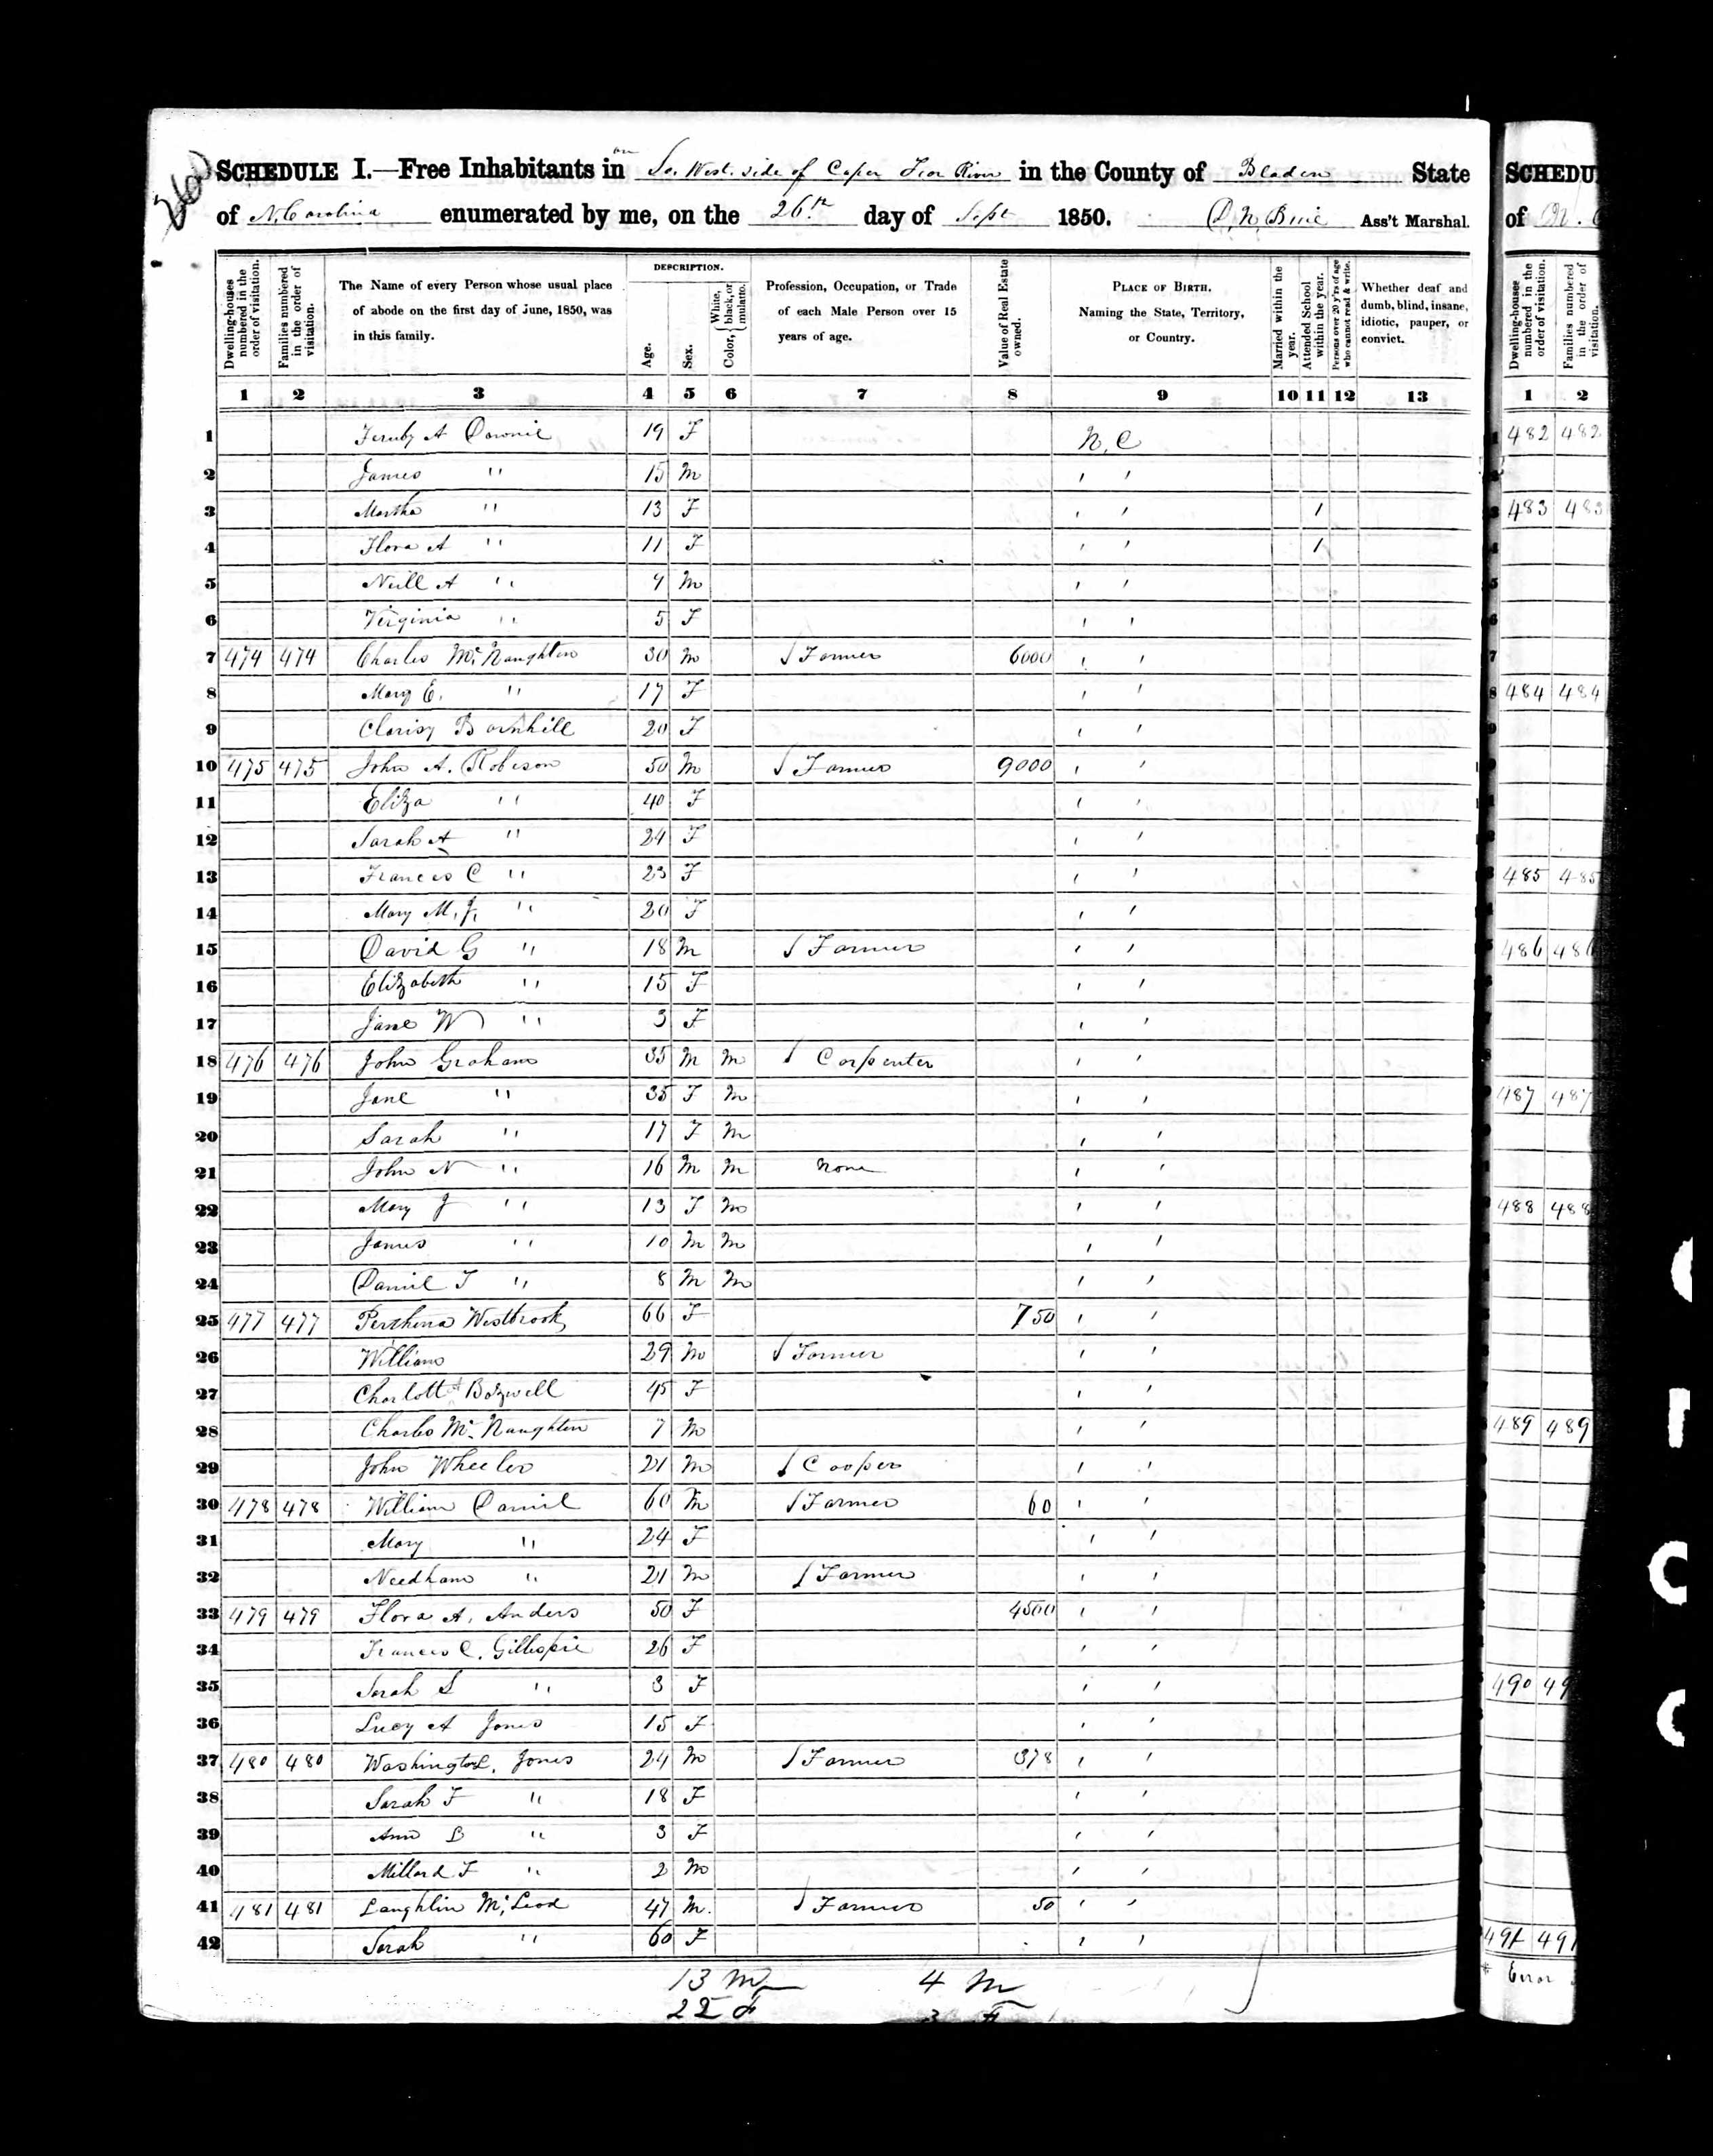 SCHEDULE I.—Free Inhabitants in on So. West. side of Cape Fear River in the County of Bladen State
of N. Carolina enumerated by me, on the 26th day of Sept 1850. D. N. Buie Ass't Marshal.
Dwelling-houses numbered in the order of visitation. Families numbered in the order of visitation. The Name of every Person whose usual place of abode on the first day of June, 1850, was in this family. DESCRIPTION. Age. Sex. Color, { White, black, or mulatto. Profession, Occupation, or Trade of each Male Person over 15 years of age. Value of Real Estate owned. PLACE OF BIRTH. Naming the State, Territory, or Country. Married within the year. Attended School within the year. Persons over 20 y'rs of age who cannot read & write. Whether deaf and dumb, blind, insane, idiotic, pauper, or convict.
1 2 3 4 5 6 7 8 9 10 11 12 13
1 A Downie 19 F N. C
2 James " 15 M ' '
3 Martha " 13 F ' ' 1
4 Flora A " 11 F ' ' 1
5 Neill A " M ' '
6 Virginia " 5 F ' '
7 474 474 Charles Mc. Naughton 30 M Farmer 6000 ' '
8 Mary E. " 17 F ' '
9 Clarisy Barnhill 20 F ' '
10 475 475 John A. Robeson 50 M Farmer 9000 ' '
11 Eliza " 40 F ' '
12 Sarah A " 24 F ' '
13 Frances C " 23 F ' '
14 Mary M. J. " 20 F ' '
15 David G " 18 M Farmer ' '
16 Elizabeth " 15 F ' '
17 Jane W " 3 F ' '
18 476 476 John Graham 35 M M Carpenter ' '
19 Jane " 35 F M ' '
20 Sarah " 17 F M ' '
21 John N " 16 M M None ' '
22 Mary J " 13 F M ' '
23 James " 10 M M ' '
24 Daniel T " 8 M M ' '
25 477 477 Perthena Westbrook 66 F 750 ' '
26 William 29 M Farmer ' '
27 Charlott Bozwell 45 F ' '
28 Charles Mc. Naughton 7 M ' '
29 John Wheeler 21 M Cooper ' '
30 478 478 William Daniel 60 M Farmer 60 ' '
31 Mary " 24 F ' '
32 Needham " 21 M Farmer ' '
33 479 479 Flora A. Anders 50 F 4500 ' '
34 Frances C. Gillespie 26 F ' '
35 Sarah S " 3 F ' '
36 Lucy A Jones 15 F ' '
37 480 480 Washington L. Jones 24 M Farmer 378 ' '
38 Sarah F " 18 F ' '
39 Ann B " 3 F ' '
40 Millard F " 2 M ' '
41 481 481 Laughlin Mc. Leod 47 M. Farmer 50 ' '
42 Sarah " 60 F ' '
13 M 4 M
22 F 3 F
SCHEDU
of N. C
Dwelling-houses numbered in the order of visitation. Families numbered in the order of visitation.
1 2
482 482
483 483
484 484
485 485
486 486
487 487
488 488
489 489
490 49
491 491
* Error